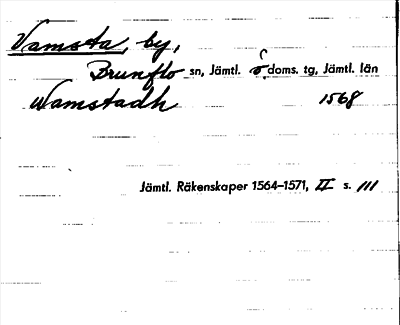 Vamsta, by,
Brunflo sn, Jämtl. ö. doms. tg, Jämtl. län
Wamstadh 1568
Jämtl. Räkenskaper 1564–1571, II s. 111